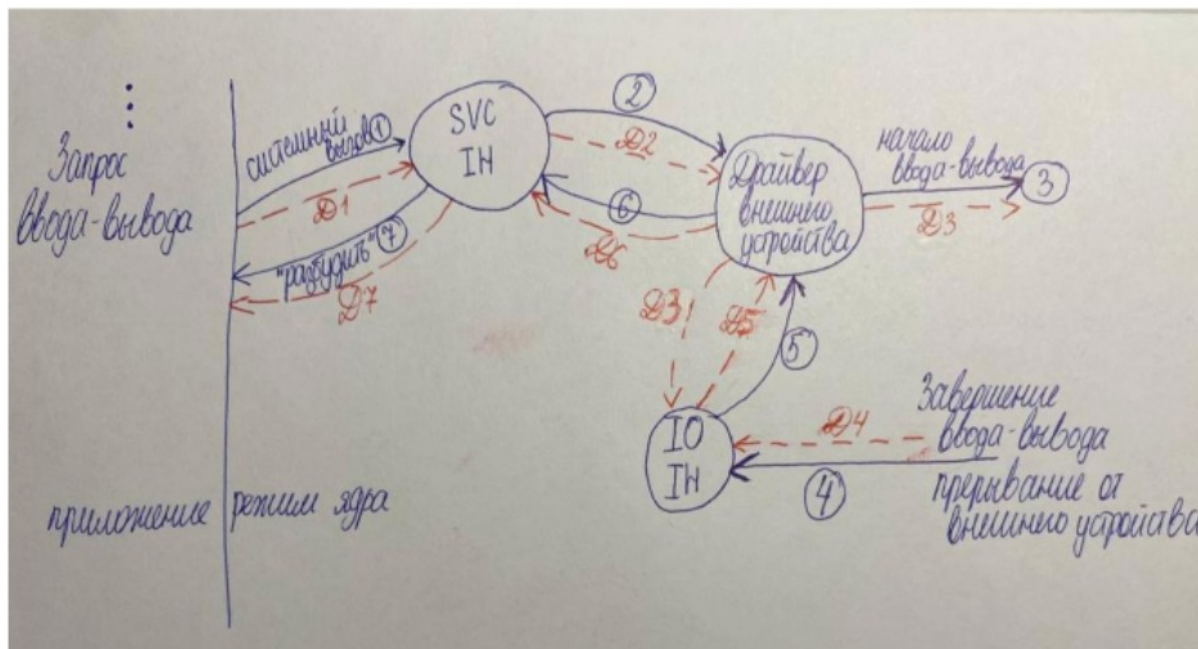 ⋮
Запрос
ввода-вывода
системный
вызов ①
Д1
SVC
IH
②
Д2
⑥
Д6
"разбудить" ⑦
Д7
Драйвер
внешнего
устройства
начало
ввода-вывода
③
Д3
Д3
Д5
⑤
IO
IH
Д4
④
Завершение
ввода-вывода
прерывание от
внешнего устройства
приложение
режим ядра